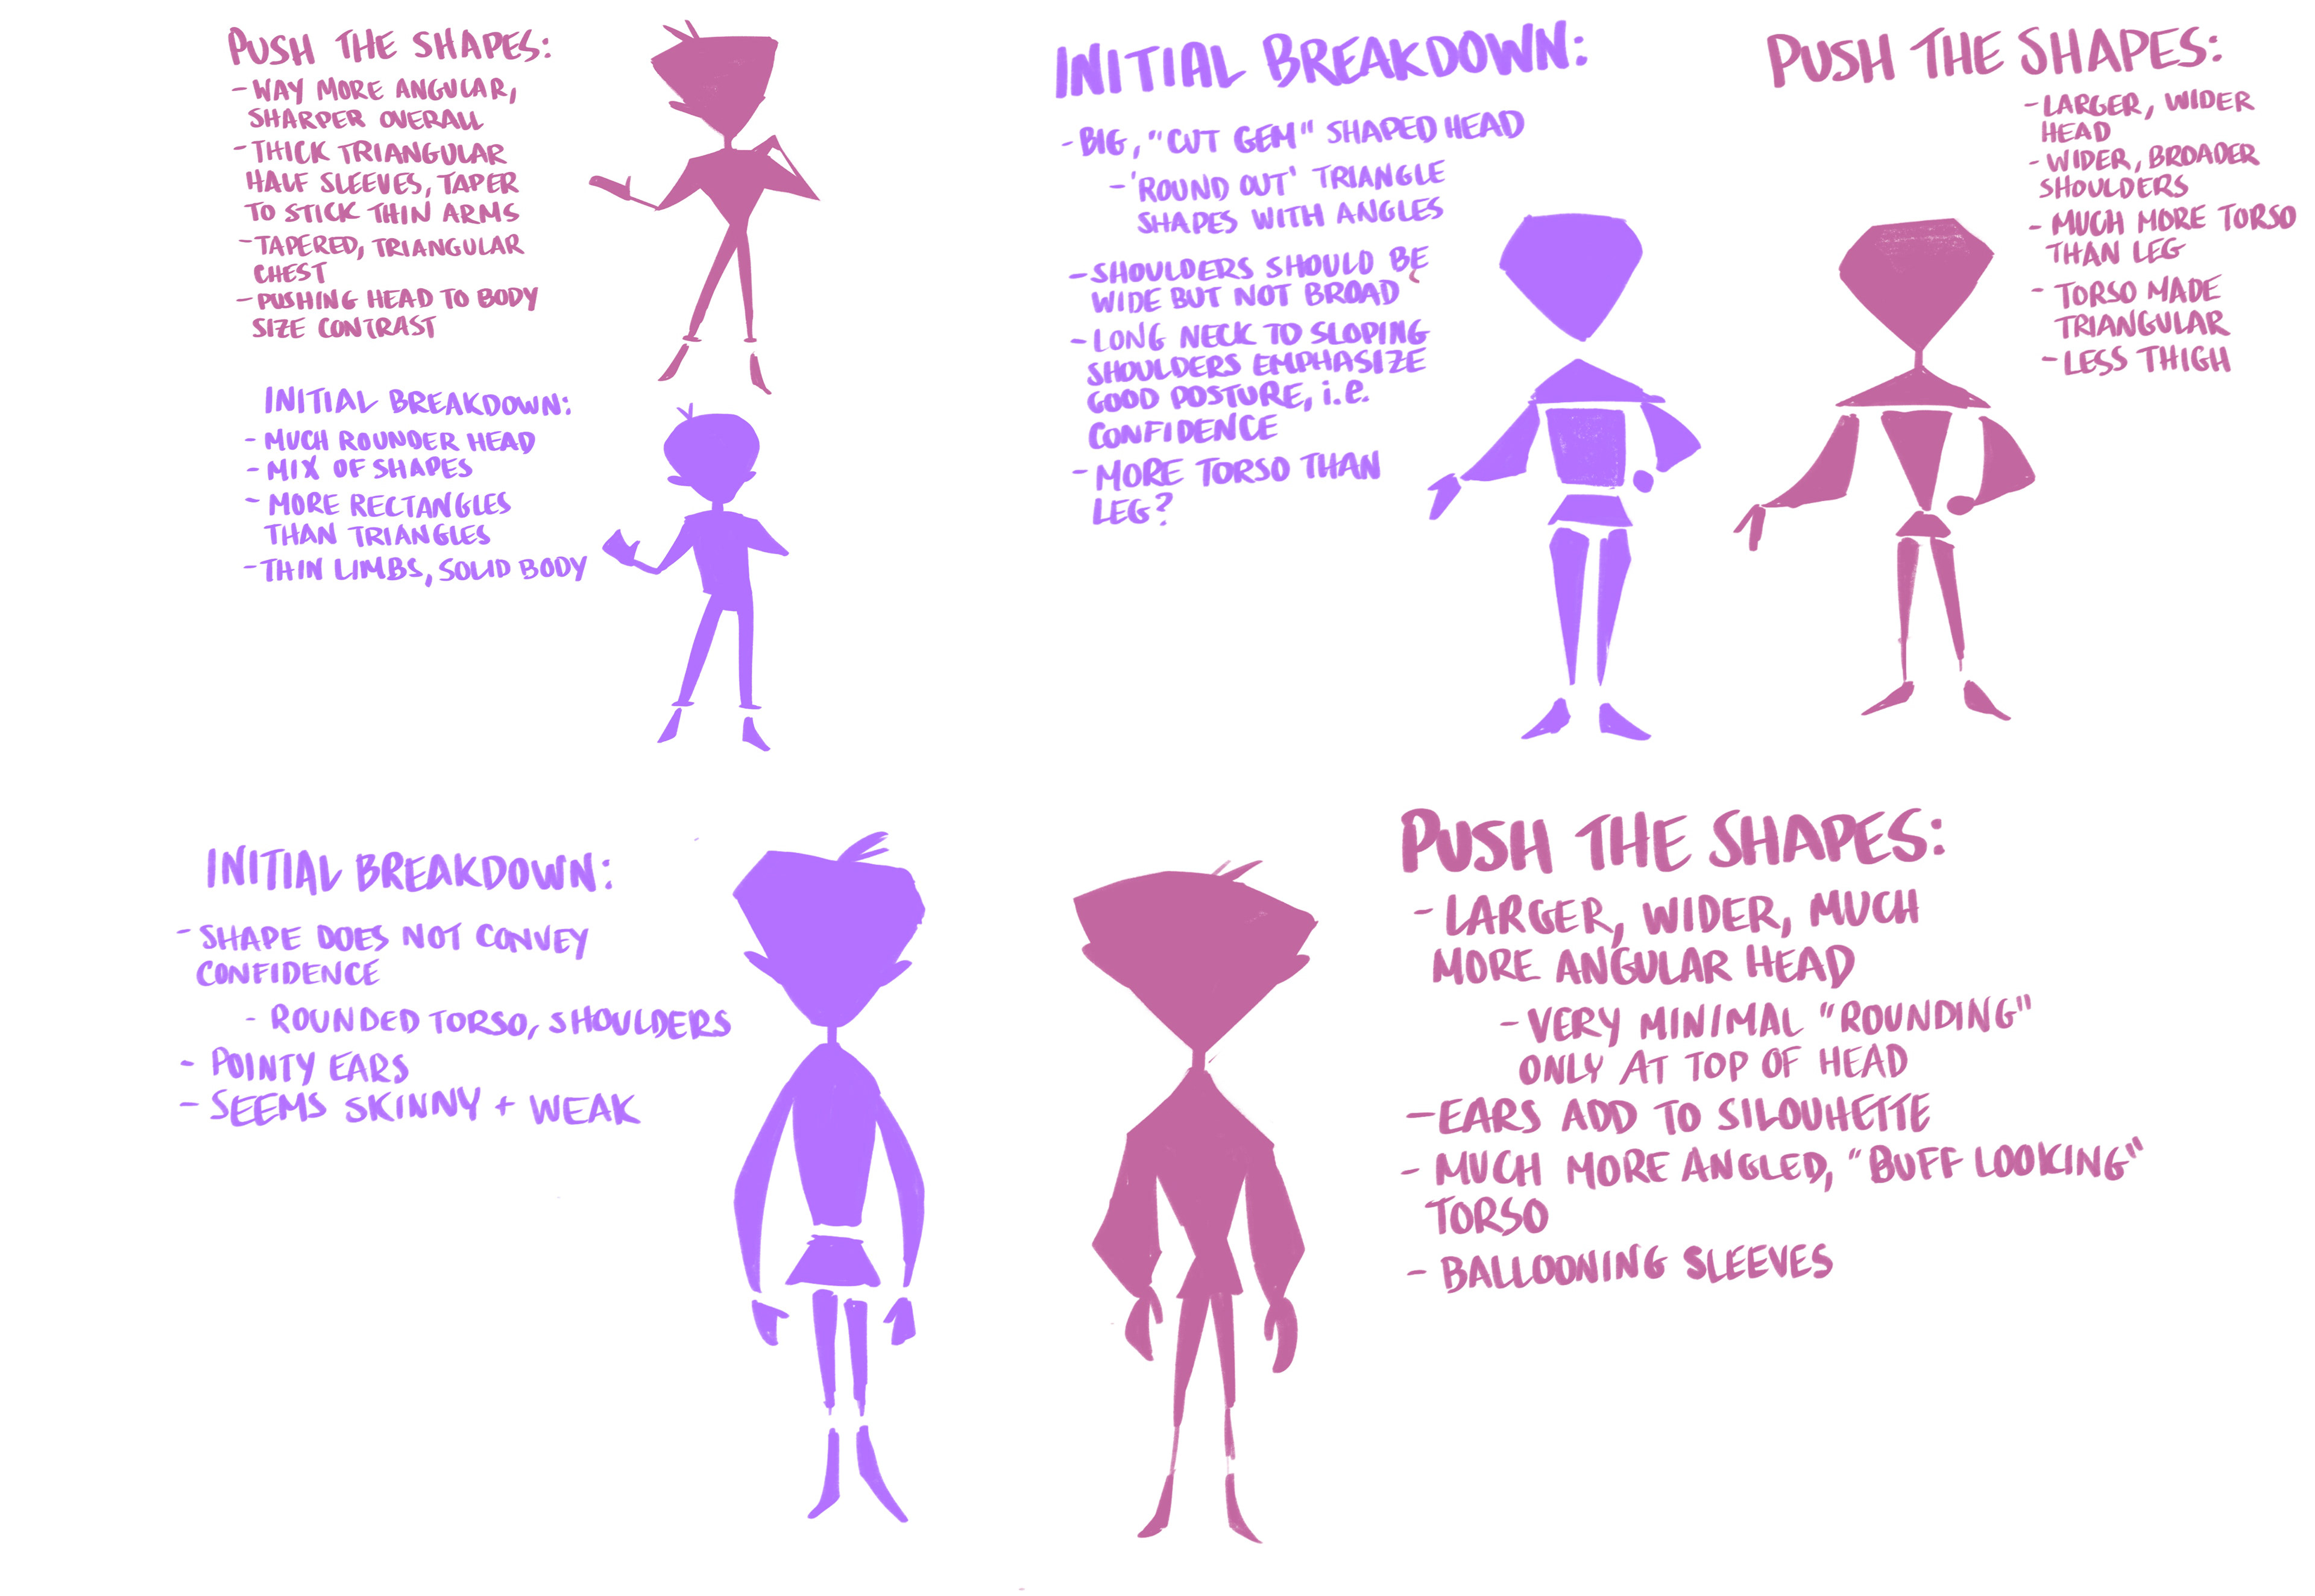 PUSH THE SHAPES:
- WAY MORE ANGULAR,
SHARPER OVERALL
- THICK TRIANGULAR
HALF SLEEVES, TAPER
TO STICK THIN ARMS
- TAPERED, TRIANGULAR
CHEST
- PUSHING HEAD TO BODY
SIZE CONTRAST
INITIAL BREAKDOWN:
- MUCH ROUNDER HEAD
- MIX OF SHAPES
- MORE RECTANGLES
THAN TRIANGLES
- THIN LIMBS, SOLID BODY
INITIAL BREAKDOWN:
- BIG, "CUT GEM" SHAPED HEAD
- 'ROUND OUT' TRIANGLE
SHAPES WITH ANGLES
- SHOULDERS SHOULD BE
WIDE BUT NOT BROAD
- LONG NECK TO SLOPING
SHOULDERS EMPHASIZE
GOOD POSTURE, i.e.
CONFIDENCE
- MORE TORSO THAN
LEG?
PUSH THE SHAPES:
- LARGER, WIDER
HEAD
- WIDER, BROADER
SHOULDERS
- MUCH MORE TORSO
THAN LEG
- TORSO MADE
TRIANGULAR
- LESS THIGH
INITIAL BREAKDOWN:
- SHAPE DOES NOT CONVEY
CONFIDENCE
- ROUNDED TORSO, SHOULDERS
- POINTY EARS
- SEEMS SKINNY + WEAK
PUSH THE SHAPES:
- LARGER, WIDER, MUCH
MORE ANGULAR HEAD
- VERY MINIMAL "ROUNDING"
ONLY AT TOP OF HEAD
- EARS ADD TO SILOUHETTE
- MUCH MORE ANGLED, "BUFF LOOKING"
TORSO
- BALLOONING SLEEVES